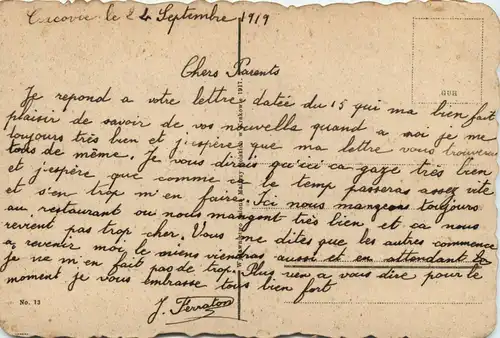 Cracovie le 24 Septembre 1919
Chers Parents
Je repond a votre lettre datée du 15 qui ma bien fait
plaisir de savoir de vos nouvells quand a moi je me
toujours très bien et j'espère que ma lettre vous trouveras
tous de même. Je vous dirais qu'ici ca gaze très bien
et j'espère que comme ca le temp passeras assez vite
et s'en trop m'en faire. Ici nous mangeons toujours
au restaurant ou nous mangent très bien et ca nous
revient pas trop cher. Vous me dites que les autres commence
a revenir moi, le miens viendras aussi et en attendant la
je ne m'en fait pas de trop. Plus rien a vous dire pour le
moment je vous embrasse tous bien fort
J. Ferraton
No. 13